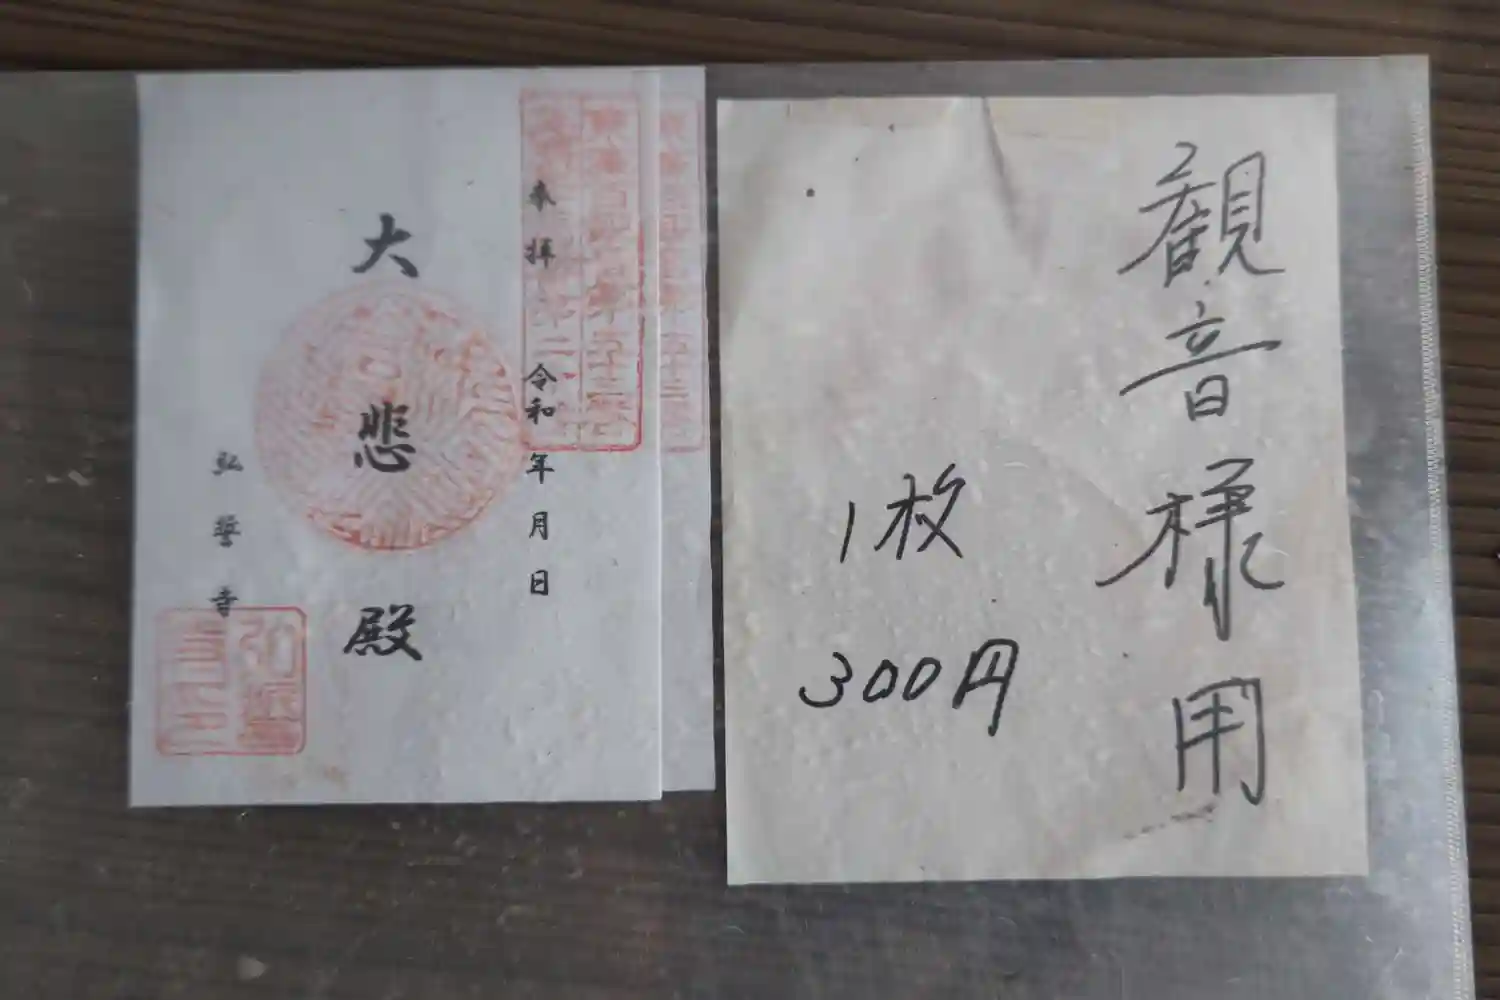 奉拝 令和 年 月 日
大悲殿
弘誓寺
観音様用
1枚
300円